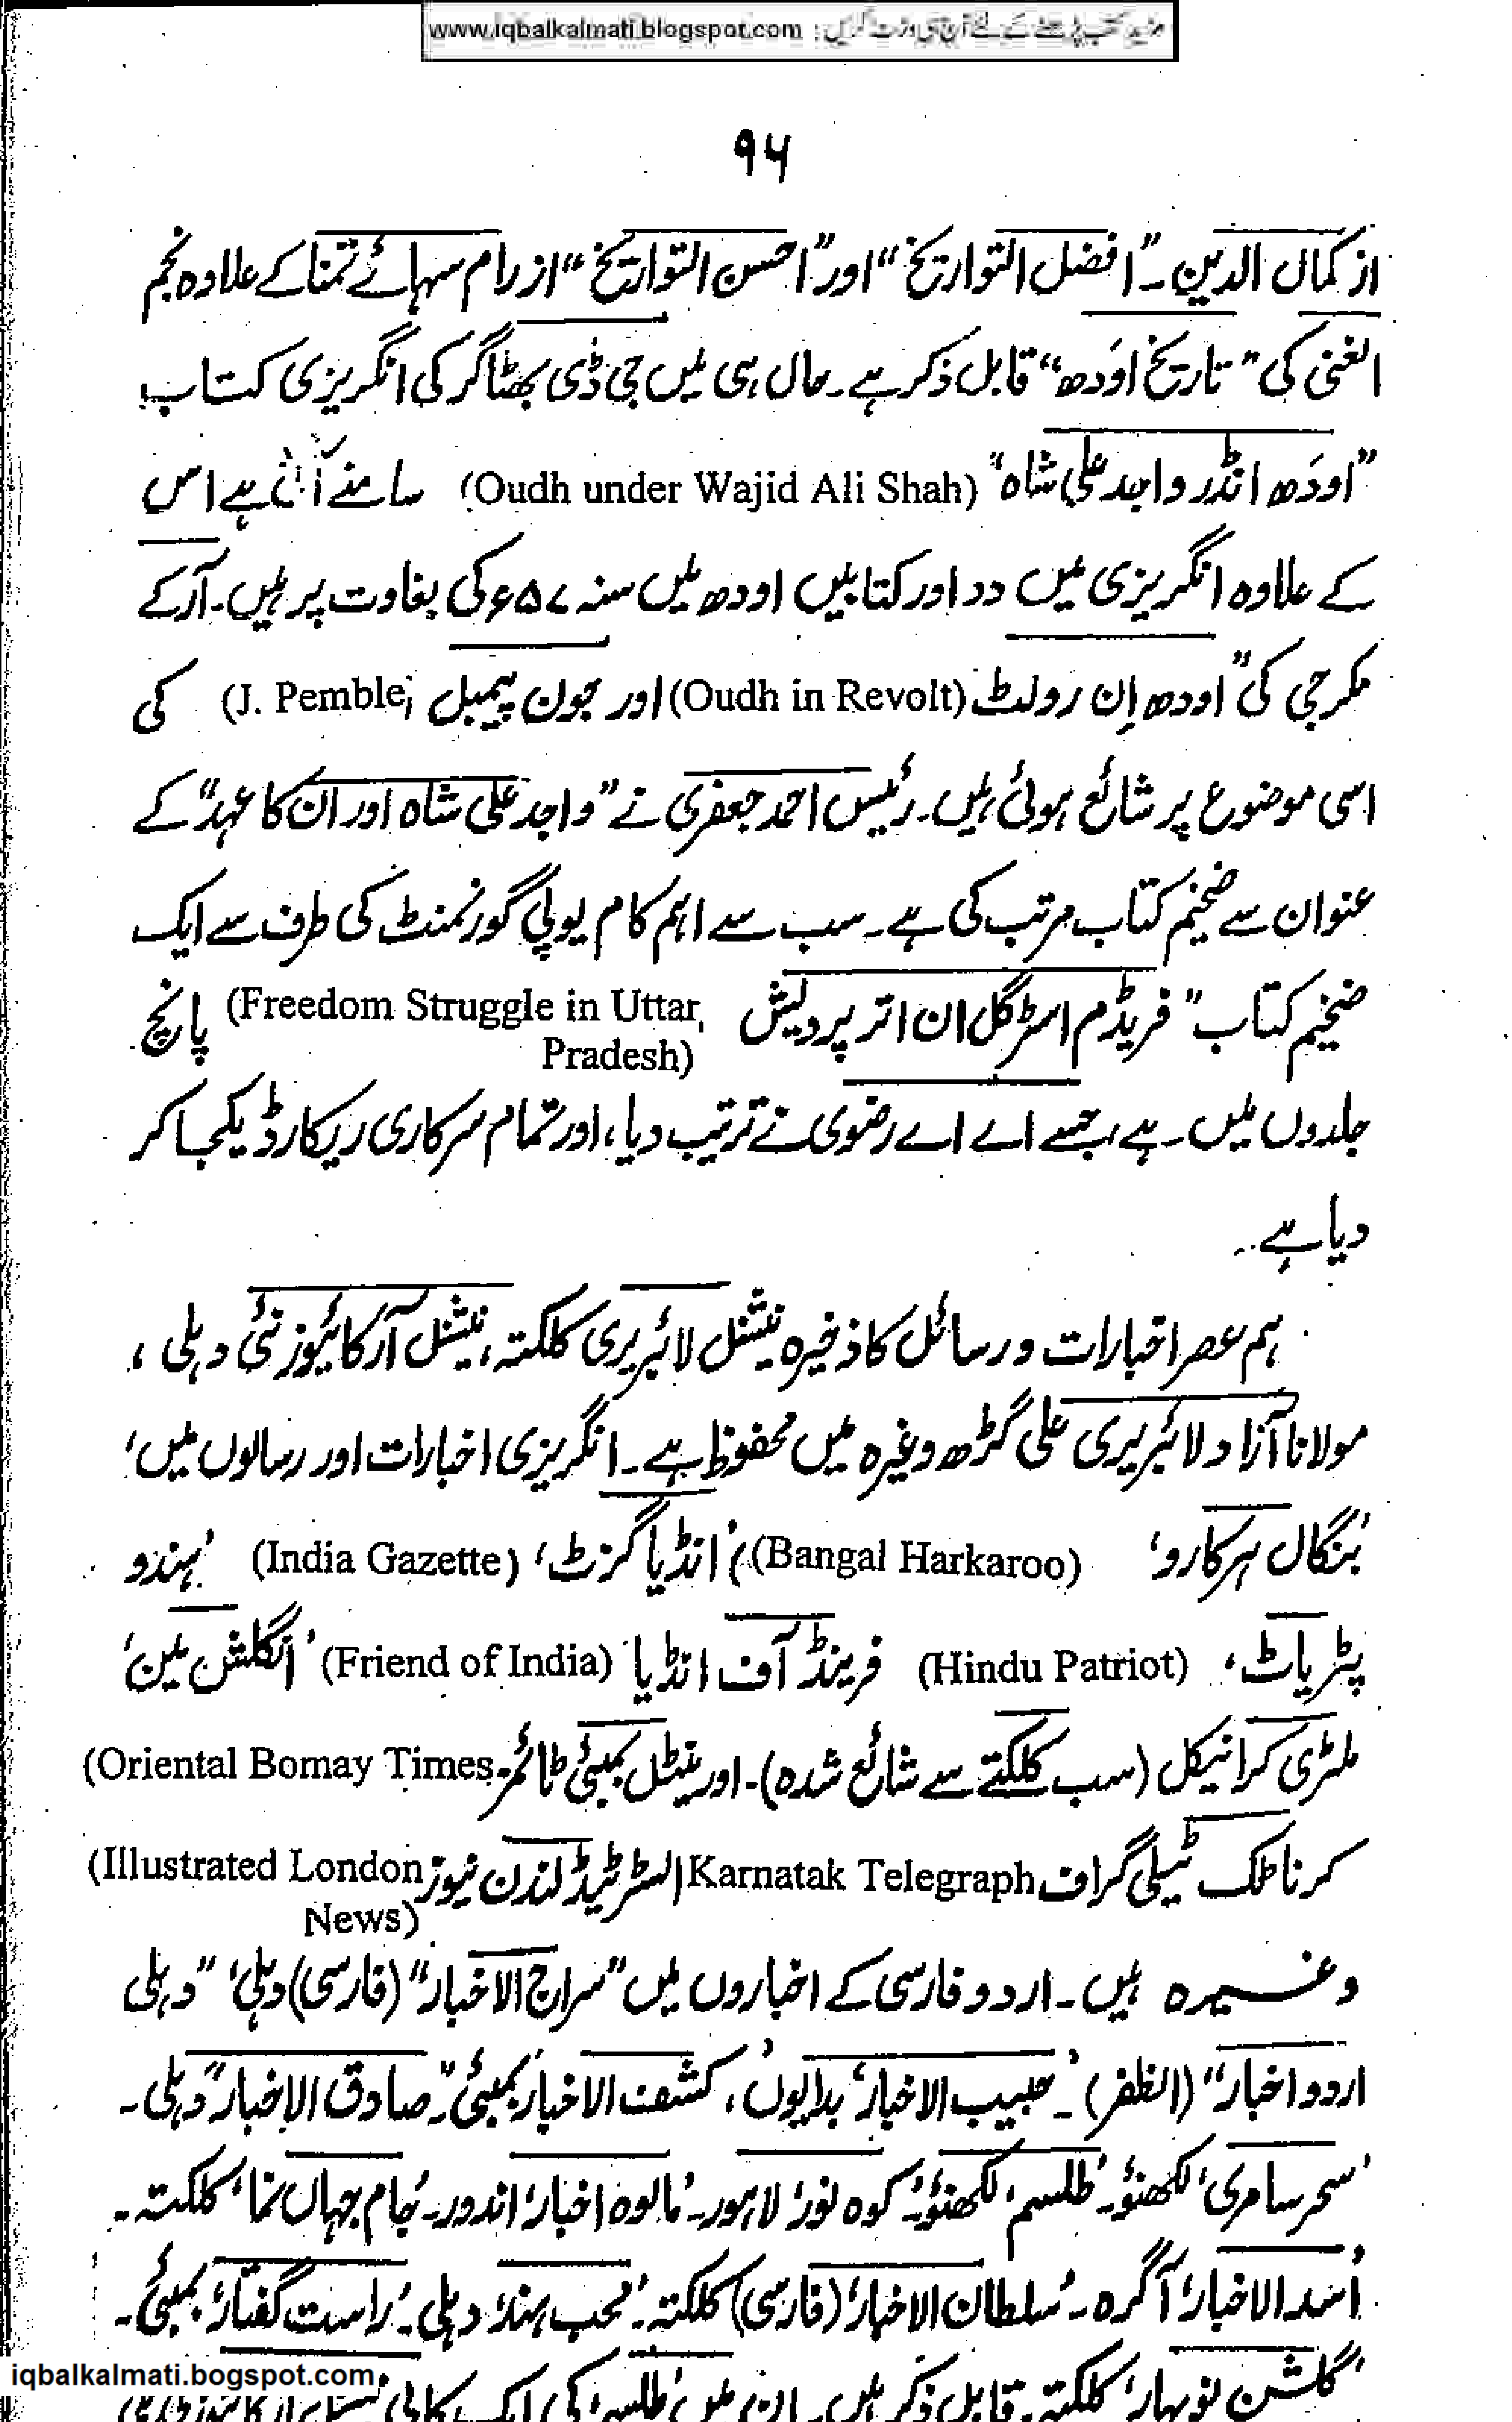 www.iqbalkalmati.blogspot.com : مزید کتب پڑھنے کے لئے آج ہی وزٹ کریں
۹۶
از کمال الدین۔ "افضل التواریخ" اور "احسن التواریخ" از رام سہائے تمنا کے علاوہ نجم
الغنی کی "تاریخ اوَدھ" قابل ذکر ہے۔ حال ہی میں جی ڈی بھٹاگر کی انگریزی کتاب
"اودَھ انڈر واجد علی شاہ" (Oudh under Wajid Ali Shah) سامنے آئی ہے اس
کے علاوہ انگریزی میں دد اور کتابیں اودھ میں سنہ ۶۵۷ کی بغاوت پر ہیں۔ آر کے
مکرجی کی "اودھ اِن رولٹ (Oudh in Revolt) اور جون پیمبل (J. Pemble) کی
اسی موضوع پر شائع ہوئی ہیں۔ رئیس احمد جعفری نے "واجد علی شاہ اور ان کا عہد" کے
عنوان سے ضخیم کتاب مرتب کی ہے۔ سب سے اہم کام یوپی گورنمنٹ کی طرف سے ایک
ضخیم کتاب "فریڈم اسٹرگل ان اتر پردیش (Freedom Struggle in Uttar Pradesh) پانچ
جلدوں میں۔ ہے، جسے اے اے رضوی نے ترتیب دیا، اور تمام سرکاری ریکارڈ یکجا کر
دیا ہے۔
ہم عصر اخبارات و رسائل کا ذخیرہ نیشنل لائبریری کلکتہ، نیشنل آرکائیوز نئی دہلی،
مولانا آزاد لائبریری علی گڑھ وغیرہ میں محفوظ ہے۔ انگریزی اخبارات اور رسالوں میں،
'بنگال ہرکارو' (Bangal Harkaroo)، 'انڈیا گزٹ' (India Gazette) 'ہندو
پٹریاٹ' (Hindu Patriot) فرینڈ آف انڈیا' (Friend of India) 'انگلش مین'
ملٹری کرانیکل (سب کلکتے سے شائع شدہ)۔ اورینٹل بمبئی ٹائمز۔ (Oriental Bomay Times
کرناٹک ٹیلی گراف Karnatak Telegraph السٹرٹیڈ لندن نیوز (Illustrated London News)
وغیرہ ہیں۔ اردو فارسی کے اخباروں میں "سراج الاخبار" (فارسی) دہلی، "دہلی
اردو اخبار" (الظفر)۔ 'حبیب الاخبار' بدایوں، 'کشف الاخبار' بمبئی۔ "صادق الاخبار" دہلی۔
'سحر سامری' لکھنؤ۔ 'طلسم' لکھنؤ۔ 'کوہ نور' لاہور۔ 'مالوہ اخبار' اندور۔ 'جام جہاں نما' کلکتہ۔
'اسد الاخبار' آگرہ۔ 'سلطان الاخبار' (فارسی) کلکتہ۔ 'محب ہند' دہلی۔ 'راست گفتار' بمبئی۔
'گلشن نوبہار' کلکتہ۔ قابل ذکر ہیں۔ ان میں 'طلسم' کی ایک کاپی
iqbalkalmati.bogspot.com